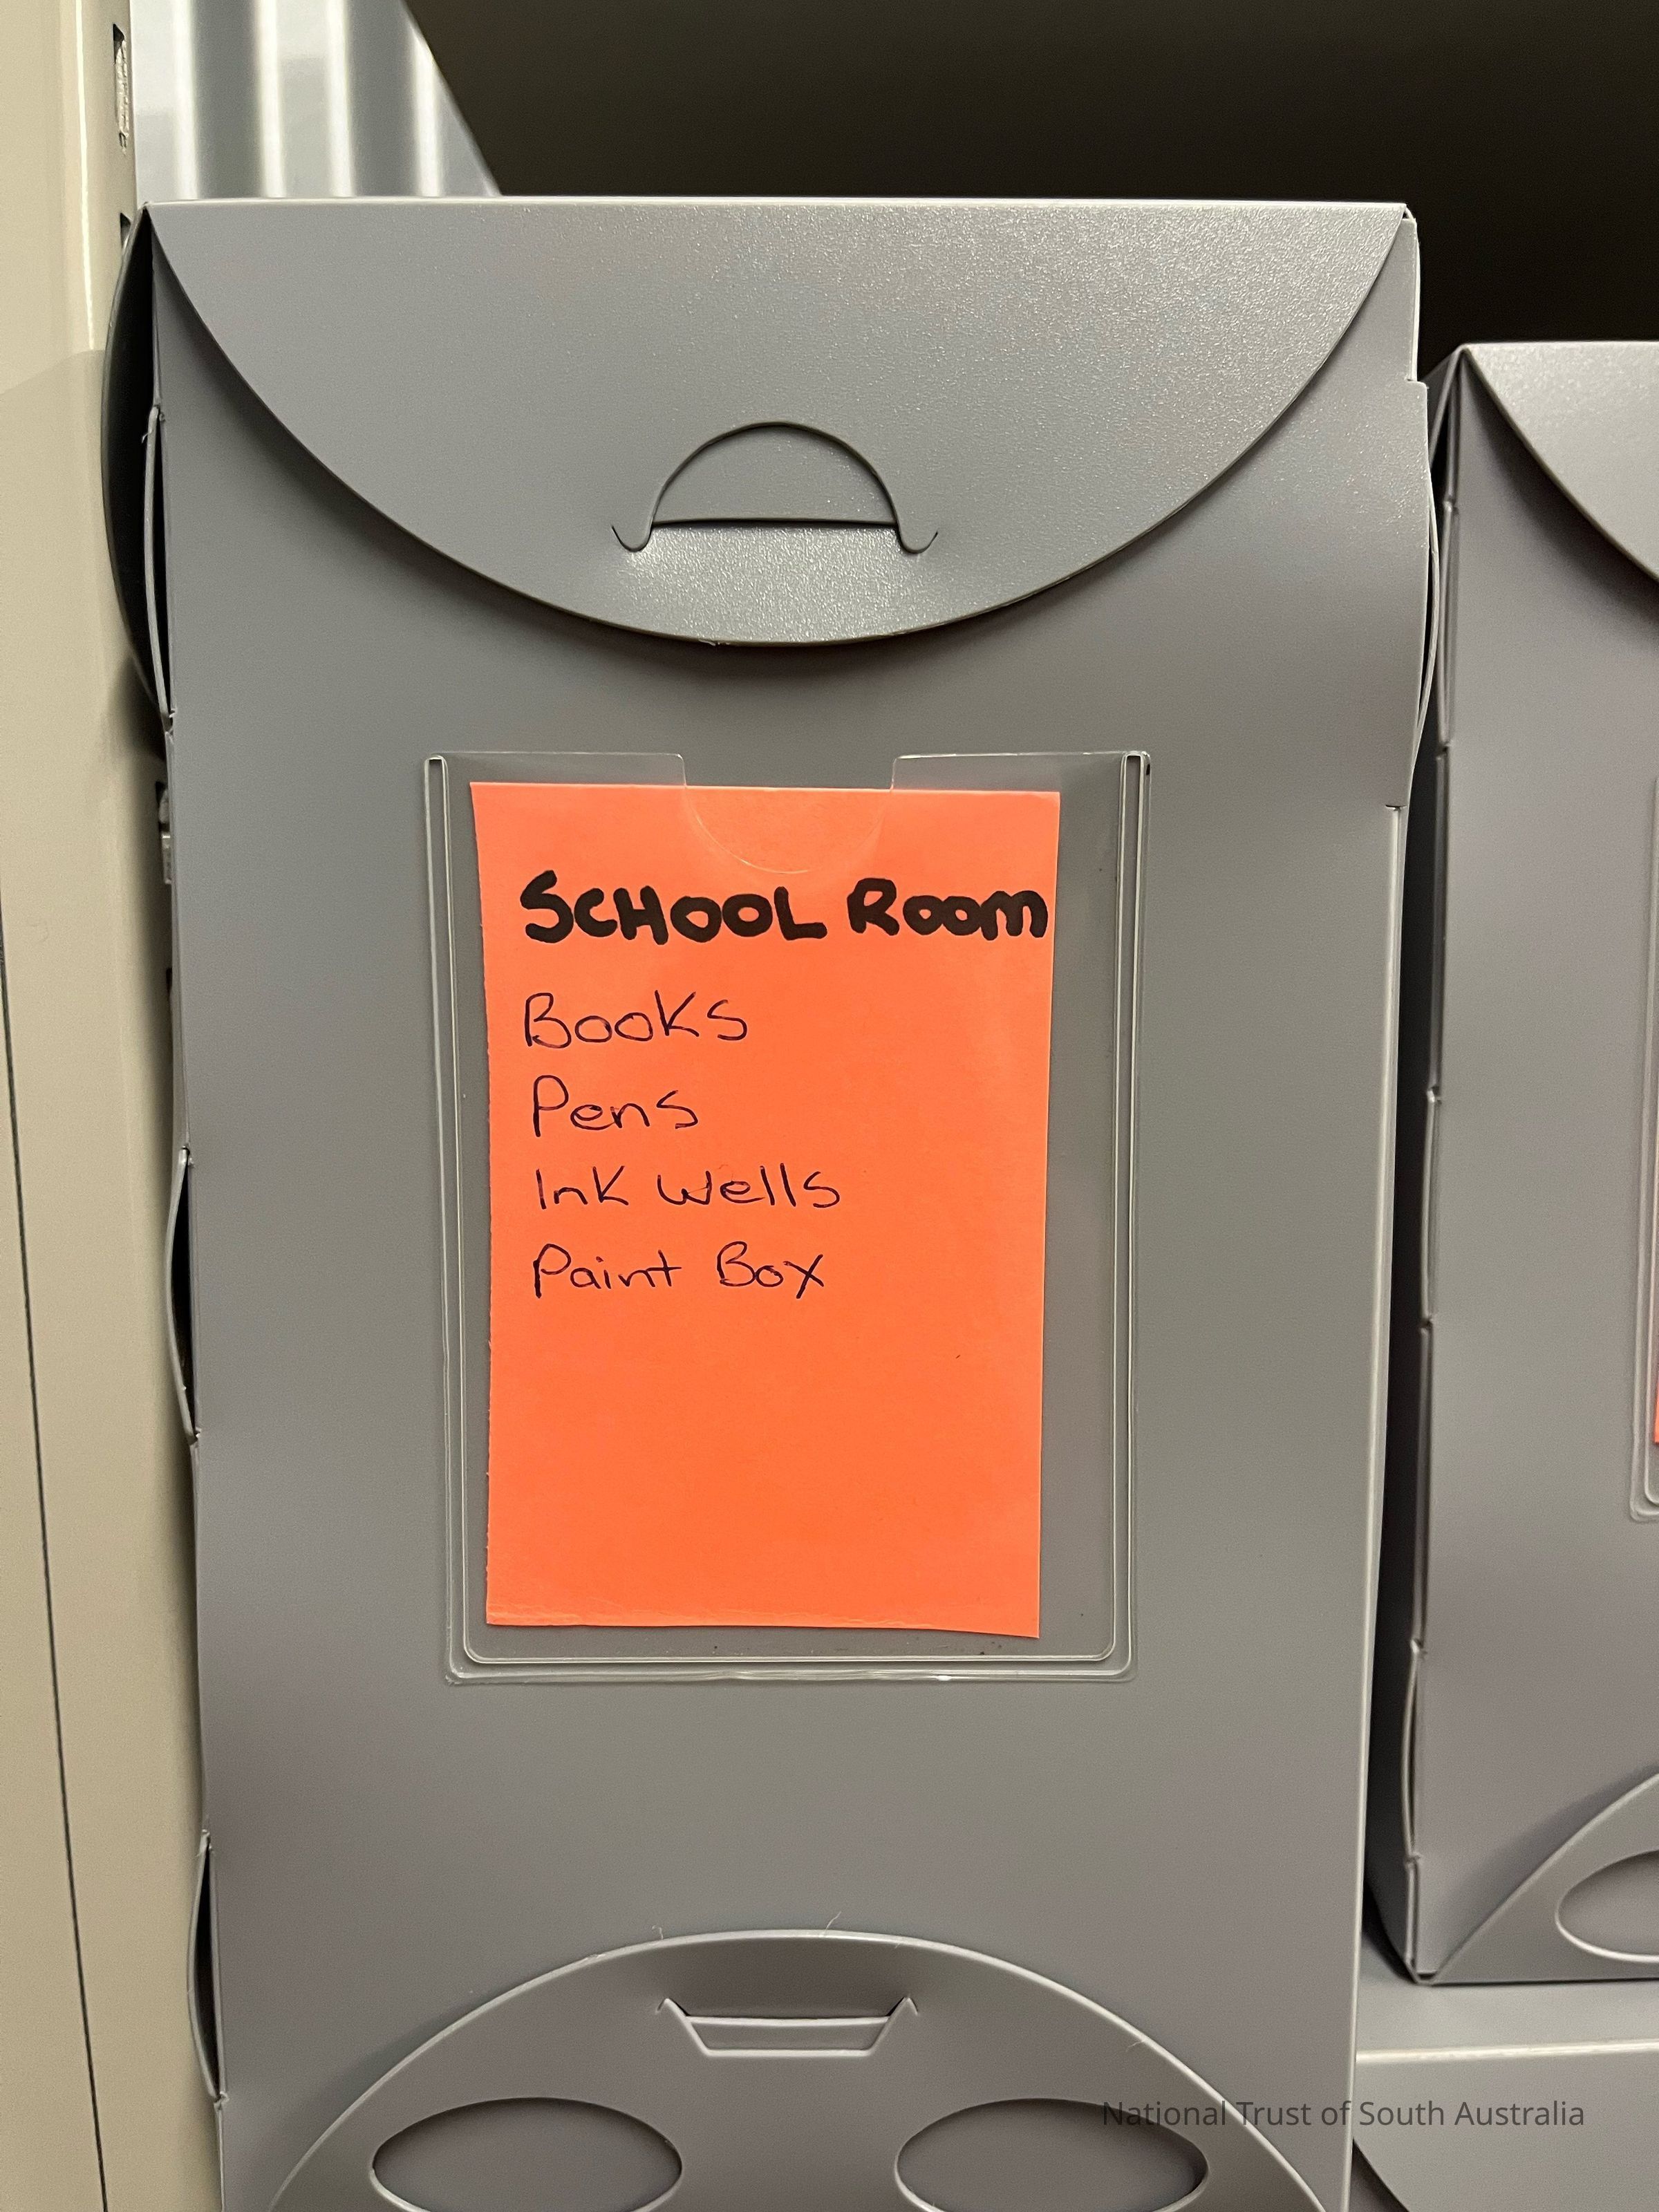 SCHOOL ROOM
Books
Pens
Ink Wells
Paint Box
National Trust of South Australia